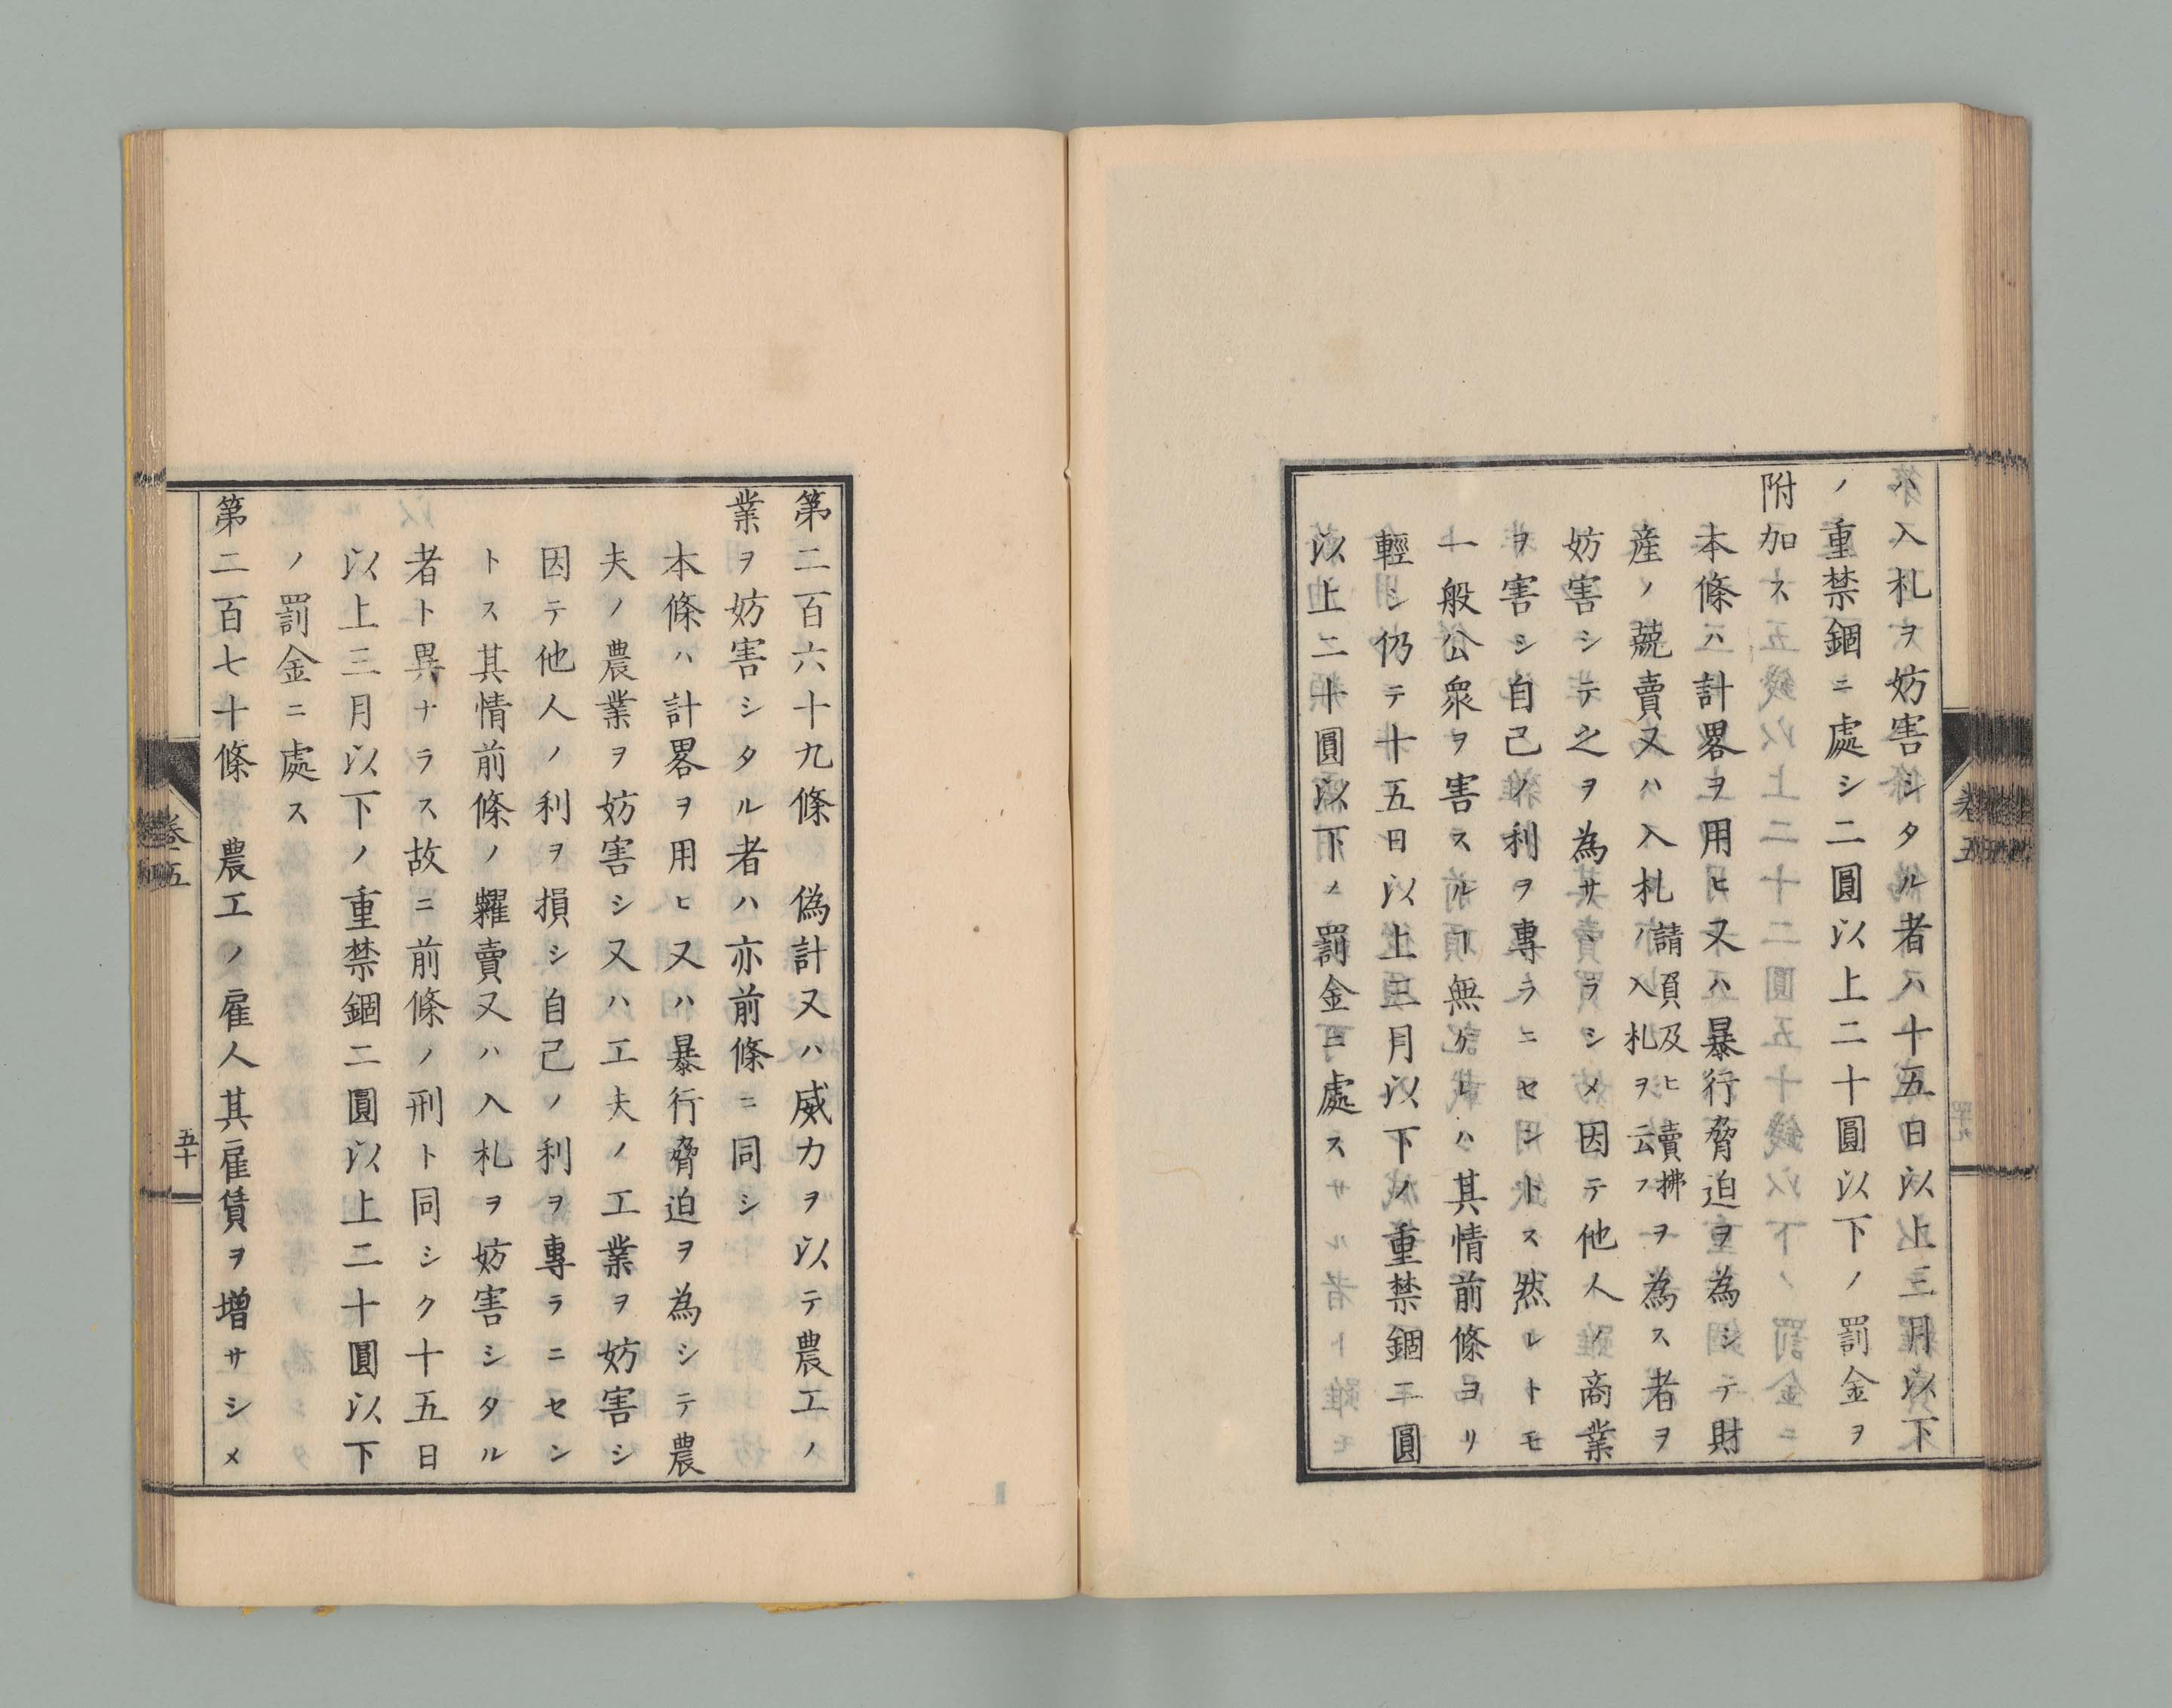 ハ入札ヲ妨害シタル者ハ十五日以上三月以下
ノ重禁錮ニ處シ二圓以上二十圓以下ノ罰金ヲ
附加ス
本條ハ計畧ヲ用ヒ又ハ暴行脅迫ヲ為シテ財
産ノ競賣又ハ入札請負及ヒ賣拂ノ入札ヲ云フヲ為ス者ヲ
妨害シテ之ヲ為サヽラシメ因テ他人ノ商業
ヲ害シ自己ノ利ヲ專ラニセントス然レトモ
一般公衆ヲ害スルコ無ケレハ其情前條ヨリ
輕シ仍テ十五日以上三月以下ノ重禁錮二圓
以上二十圓以下ノ罰金ニ處ス
卷五
第二百六十九條 偽計又ハ威力ヲ以テ農工ノ
業ヲ妨害シタル者ハ亦前條ニ同シ
本條ハ計畧ヲ用ヒ又ハ暴行脅迫ヲ為シテ農
夫ノ農業ヲ妨害シ又ハ工夫ノ工業ヲ妨害シ
因テ他人ノ利ヲ損シ自己ノ利ヲ專ラニセン
トス其情前條ノ糶賣又ハ入札ヲ妨害シタル
者ト異ナラス故ニ前條ノ刑ト同シク十五日
以上三月以下ノ重禁錮二圓以上二十圓以下
ノ罰金ニ處ス
第二百七十條 農工ノ雇人其雇賃ヲ増サシメ
卷五
五十